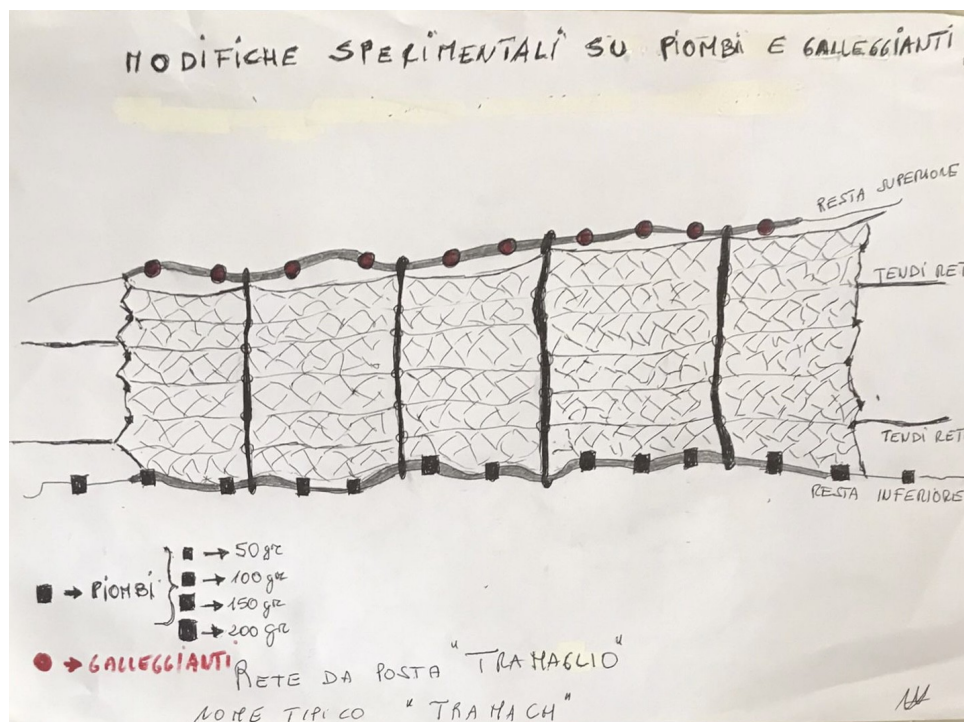 MODIFICHE SPERIMENTALI SU PIOMBI E GALLEGGIANTI
RESTA SUPERIORE
TENDI RET
TENDI RET
RESTA INFERIORE
50 gr
100 gr
PIOMBI
150 gr
200 gr
GALLEGGIANTI
RETE DA POSTA "TRAMAGLIO"
NOME TIPICO "TRAMACH"